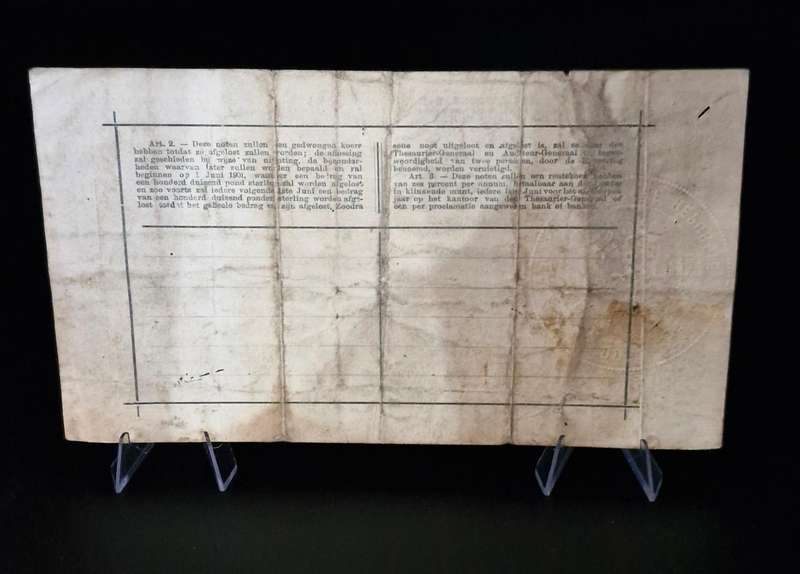 Art. 2. — Deze noten zullen een gedwongen koers
hebben totdat ze afgelost zullen worden; de aflossing
zal geschieden bij wijze van uitloting, de bezonder-
heden waarvan later zullen worden bepaald en zal
beginnen op 1 Juni 1901, wanneer een bedrag van
een honderd duizend pond sterling zal worden afgelost
en zoo voorts zal iedere volgende 1ste Juni een bedrag
van een honderd duizend ponden sterling worden afge-
lost totdat het geheele bedrag zal zijn afgelost. Zoodra
eene noot uitgeloot en afgelost is, zal ze door den
Thesaurier-Generaal en Auditeur-Generaal in tegen-
woordigheid van twee personen, door de Regeering
benoemd, worden vernietigd.
Art. 3. — Deze noten zullen een rentekoers hebben
van zes percent per annum, betaalbaar aan den houder
in klinkende munt, iedere 1ste Juni voor het afgeloopen
jaar op het kantoor van den Thesaurier-Generaal of
een per proclamatie aangewezen bank of banken.